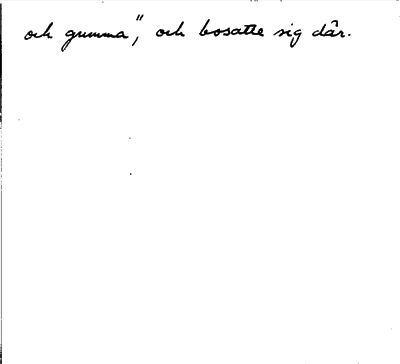 och gumma", och bosatte sig där.